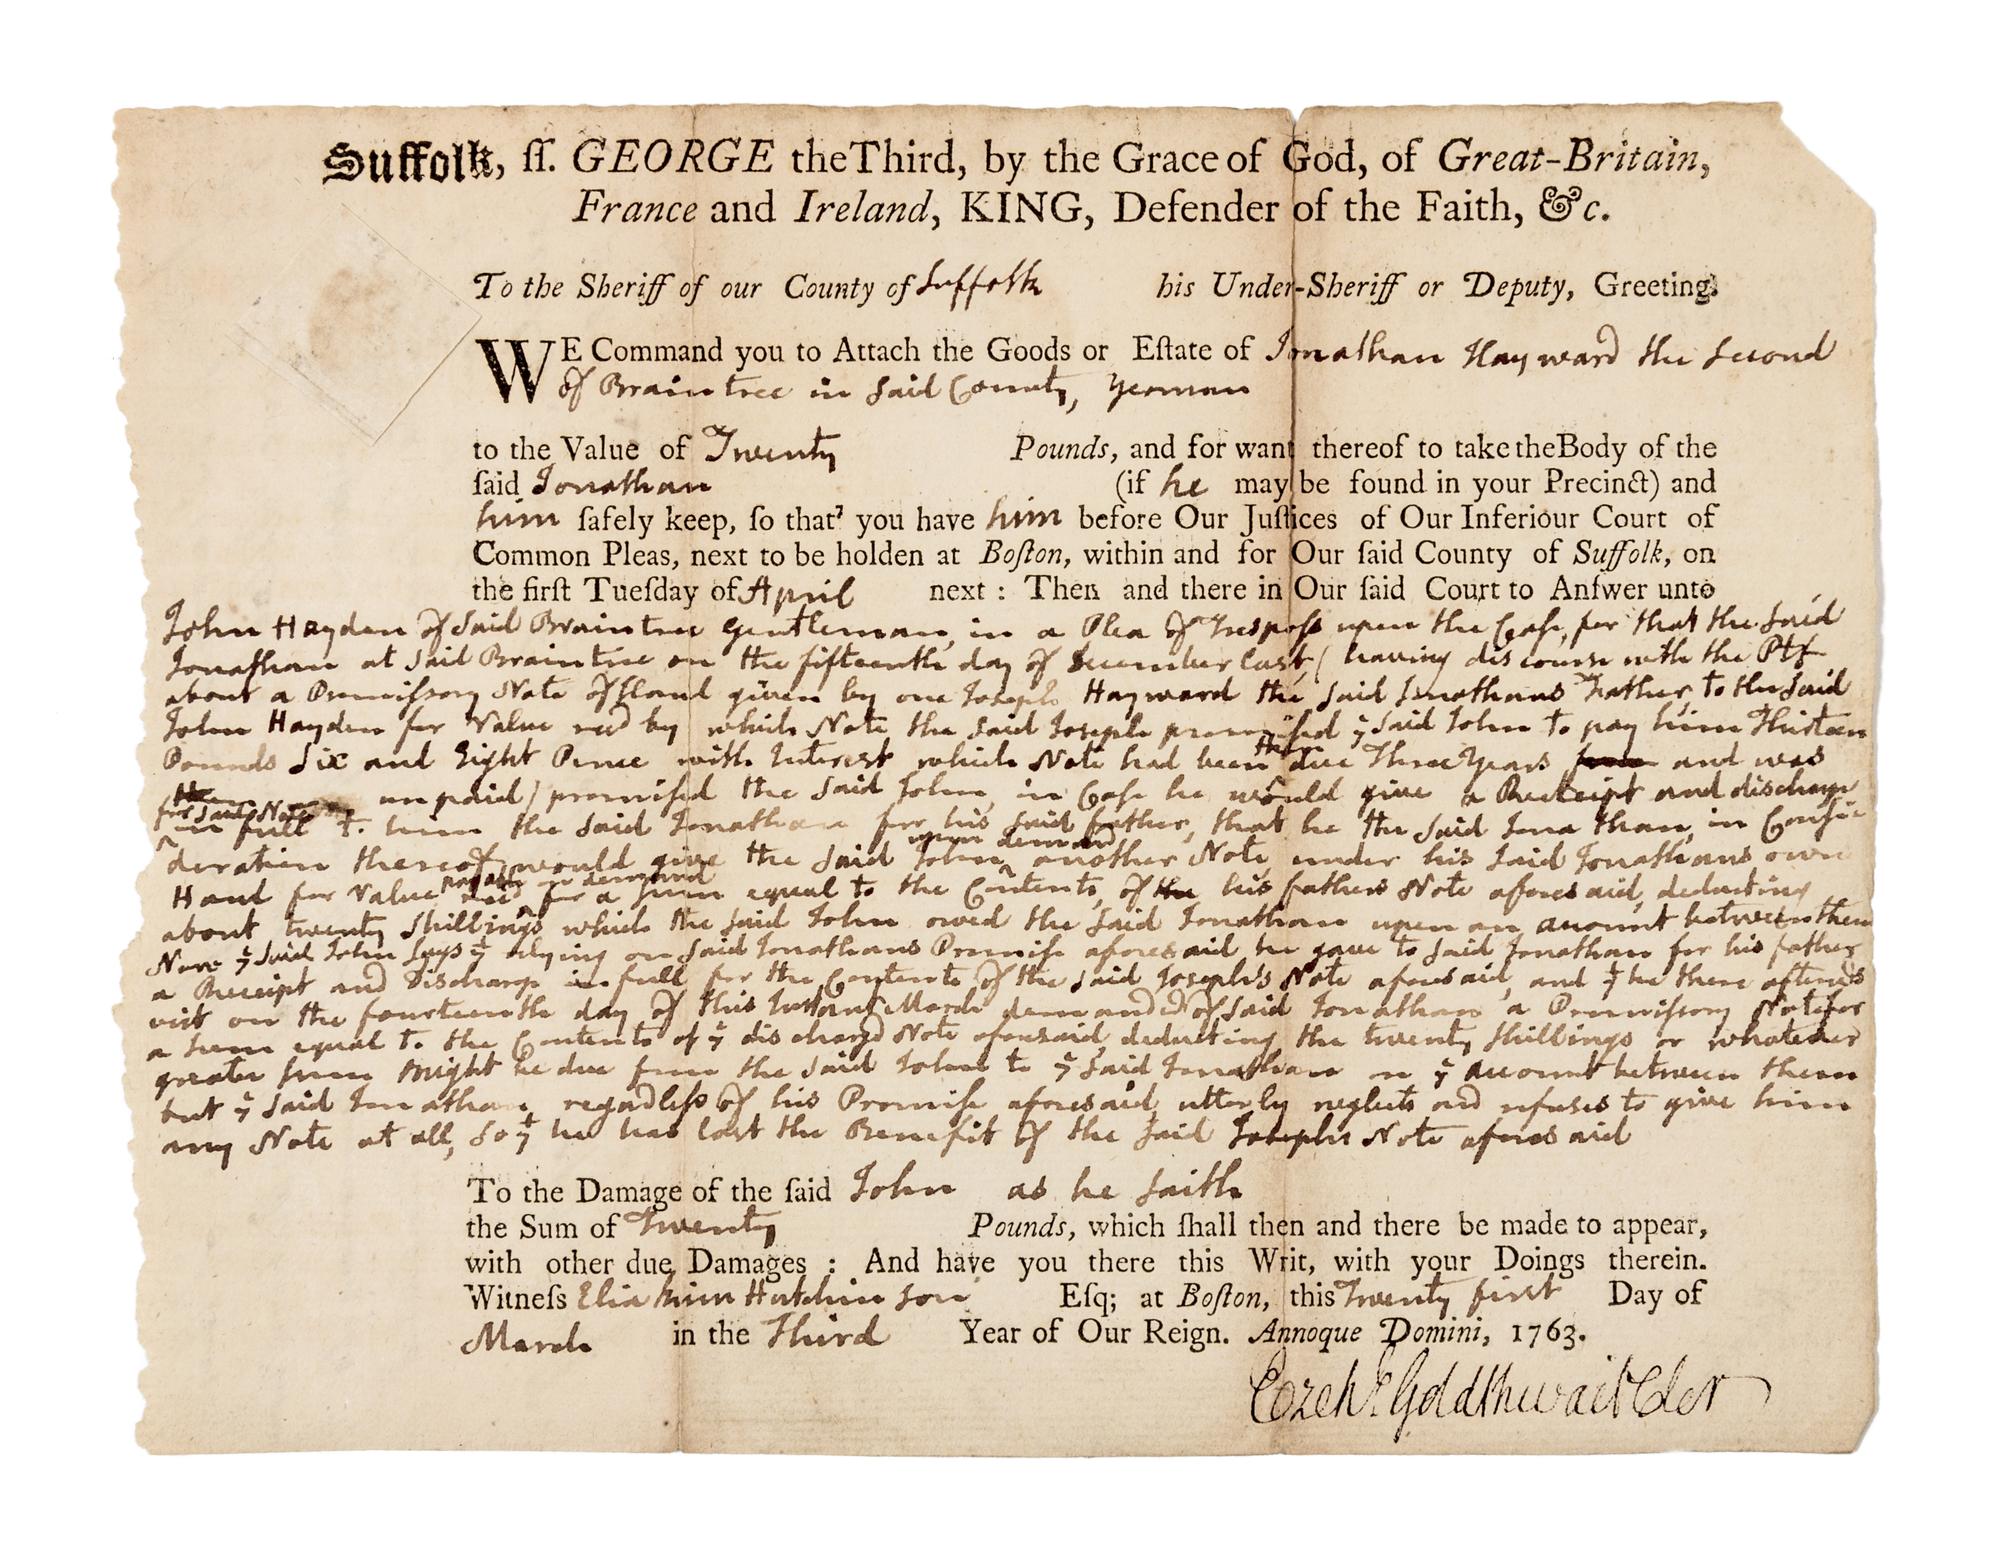 Suffolk, ſſ. GEORGE the Third, by the Grace of God, of Great-Britain,
France and Ireland, KING, Defender of the Faith, &c.
To the Sheriff of our County of Suffolk his Under-Sheriff or Deputy, Greeting.
WE Command you to Attach the Goods or Eſtate of Jonathan Hayward the Second
of Braintree in Said County, Yeoman
to the Value of Twenty Pounds, and for want thereof to take the Body of the
ſaid Jonathan (if he may be found in your Precinct) and
him ſafely keep, ſo that you have him before Our Juſtices of Our Inferiour Court of
Common Pleas, next to be holden at Boſton, within and for Our ſaid County of Suffolk, on
the firſt Tueſday of April next : Then and there in Our ſaid Court to Anſwer unto
John Hayden of Said Braintree Gentleman, in a Plea of Trespaſs upon the Caſe, for that the Said
Jonathan at Said Braintree on the fifteenth day of December last, (having discourse with the Ptf
about a Promiſsory Note of Hand given by one Joseph Hayward the Said Jonathans Father, to the Said
John Hayden for Value recd by which Note the Said Joseph promised ye Said John to pay him Thirteen
Pounds Six and Eight Pence with Interest which Note had been then due Three Years and was
unpaid) promised the Said John, in Caſe he would give a Receipt and discharge
for Said Note
in full to him the Said Jonathan for his Said father, that he the Said Jonathan, in Consi-
deration thereof, would give the Said John upon demand another Note under his Said Jonathans own
Hand for Value recd payable on demand for a Sum equal to the Contents, of his fathers Note aforesaid, deducting
about twenty Shillings which the Said John owed the Said Jonathan upon an account between them
Now ye Said John Says yt relying on Said Jonathans Promise aforesaid he gave to Said Jonathan for his father
a Receipt and Discharge in full for the Contents of the Said Joseph's Note aforesaid, and yt he there afterwds
vizt on the fourteenth day of this Instant March demanded of Said Jonathan a Promiſsory Note for
a Sum equal to the Contents of ye dischargd Note aforesaid, deducting the twenty Shillings or whatever
greater Sum might be due from the Said John to ye Said Jonathan on ye account between them
but ye Said Jonathan, regardleſs of his Promise aforesaid, utterly neglects and refuses to give him
any Note at all, So yt he has lost the Benefit of the Said Josephs Note aforesaid
To the Damage of the ſaid John as he Saith
the Sum of Twenty Pounds, which ſhall then and there be made to appear,
with other due Damages : And have you there this Writ, with your Doings therein.
Witneſs Eliakim Hutchinson Eſq; at Boſton, this Twenty first Day of
March in the Third Year of Our Reign. Annoque Domini, 1763.
Ezekl Goldthwait Cler